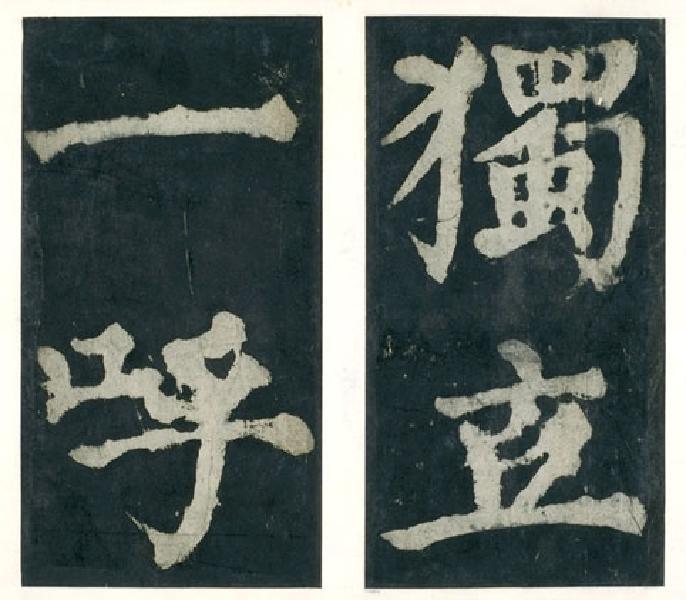 獨立
一呼